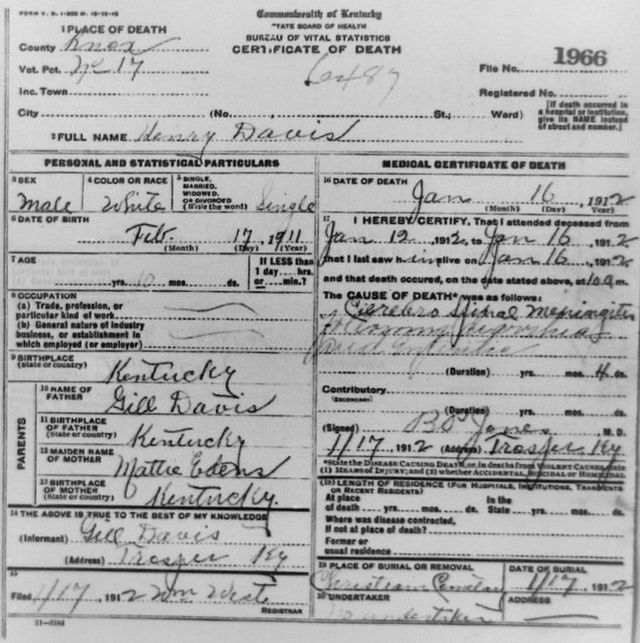 FORM V. S. 1-
Commonwealth of Kentucky
STATE BOARD OF HEALTH
BUREAU OF VITAL STATISTICS
CERTIFICATE OF DEATH
1 PLACE OF DEATH
County Knox
Vot. Pct. No 17
Inc. Town
City (No. St.; Ward)
6487
File No. 1966
Registered No.
(If death occurred in a hospital or institution, give its NAME instead of street and number.)
2 FULL NAME Henry Davis
PERSONAL AND STATISTICAL PARTICULARS
3 SEX Male
4 COLOR OR RACE White
5 SINGLE, MARRIED, WIDOWED, OR DIVORCED (Write the word) Single
6 DATE OF BIRTH Feb. 17 1911
(Month) (Day) (Year)
7 AGE yrs. 10 mos. ds.
If LESS than 1 day hrs. or min.?
8 OCCUPATION
(a) Trade, profession, or particular kind of work
(b) General nature of industry business, or establishment in which employed (or employer)
9 BIRTHPLACE (State or country) Kentucky
PARENTS
10 NAME OF FATHER Gill Davis
11 BIRTHPLACE OF FATHER (State or country) Kentucky
12 MAIDEN NAME OF MOTHER Mattie Edens
13 BIRTHPLACE OF MOTHER (State or country) Kentucky
14 THE ABOVE IS TRUE TO THE BEST OF MY KNOWLEDGE
(Informant) Gill Davis
(Address) Trosper Ky
15
Filed 1/17, 1912 Wm West
REGISTRAR
11-3184
MEDICAL CERTIFICATE OF DEATH
16 DATE OF DEATH Jan 16, 1912
(Month) (Day) (Year)
17 I HEREBY CERTIFY, That I attended deceased from
Jan 12, 1912, to Jan 16, 1912
that I last saw him alive on Jan 16, 1912
and that death occurred, on the date stated above, at 10 a m.
The CAUSE OF DEATH* was as follows:
Cerebro Spinal Meningitis
(Duration) yrs. mos. 4 ds.
Contributory
(SECONDARY)
(Duration) yrs. mos. ds.
(Signed) Jones M. D.
1/17, 1912 (Address) Trosper Ky
*State the DISEASE CAUSING DEATH, or, in deaths from VIOLENT CAUSES, state (1) MEANS OF INJURY; and (2) whether ACCIDENTAL, SUICIDAL or HOMICIDAL
(18) LENGTH OF RESIDENCE (FOR HOSPITALS, INSTITUTIONS, TRANSIENTS OR RECENT RESIDENTS)
At place of death yrs. mos. ds.
In the State yrs. mos. ds.
Where was disease contracted, if not at place of death?
Former or usual residence
19 PLACE OF BURIAL OR REMOVAL Christian Cemetery
DATE OF BURIAL 1/17, 1912
20 UNDERTAKER no undertaker
ADDRESS